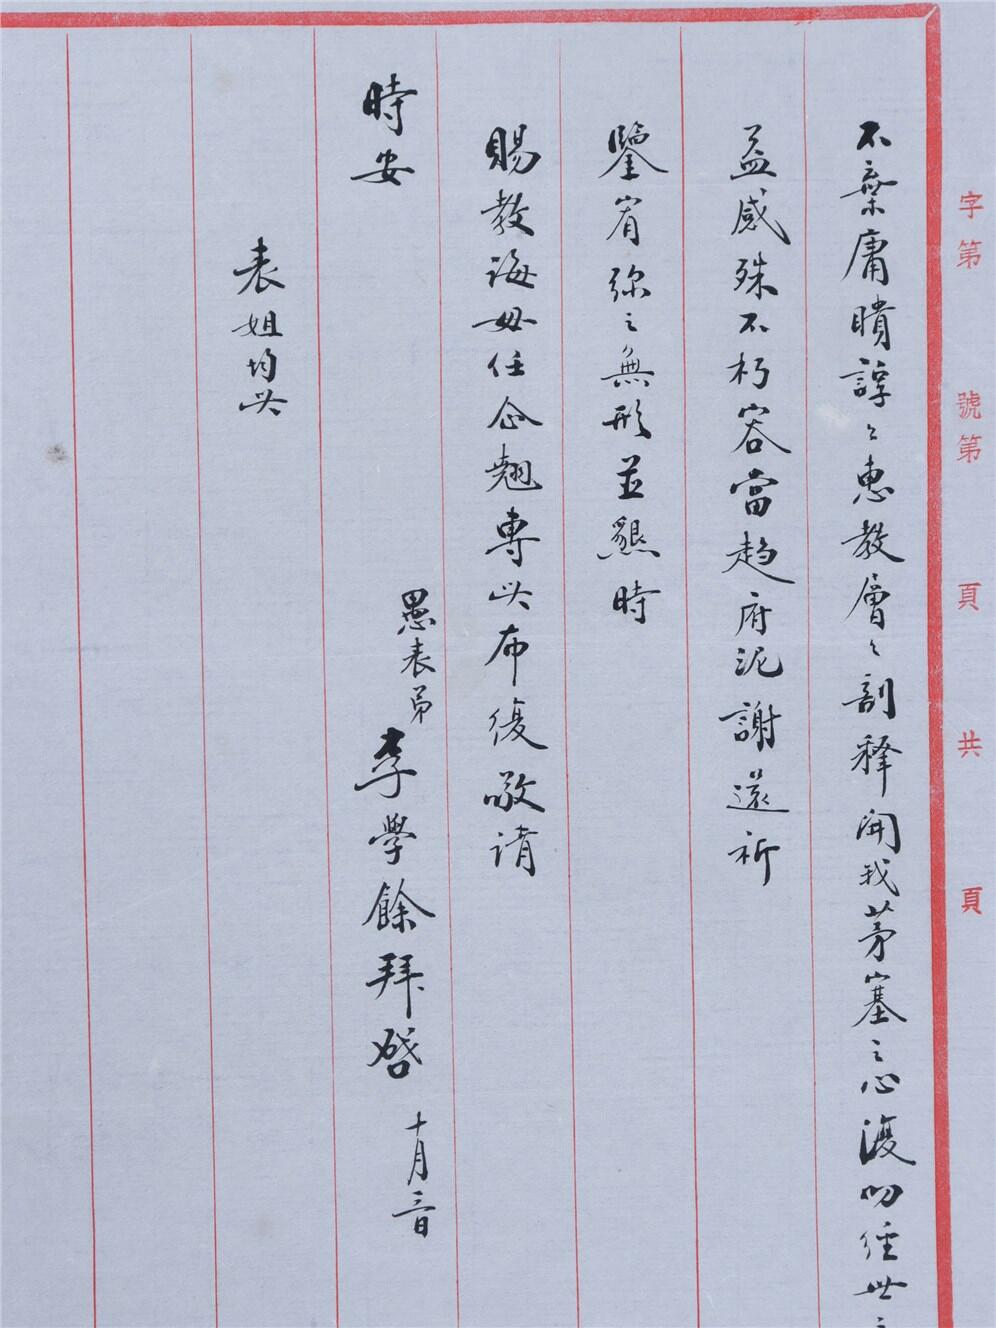 字第　號第　頁　共　頁
不棄庸瞶諄々惠教層々剖釋開我茅塞之心復叨經世之
益感殊不朽容當趨府泥謝還祈
鑒宥弥之無形並懇時
賜教誨毋任企翹專此布復敬請
時安
愚表弟李學餘拜啓 十月二日
表姐均此